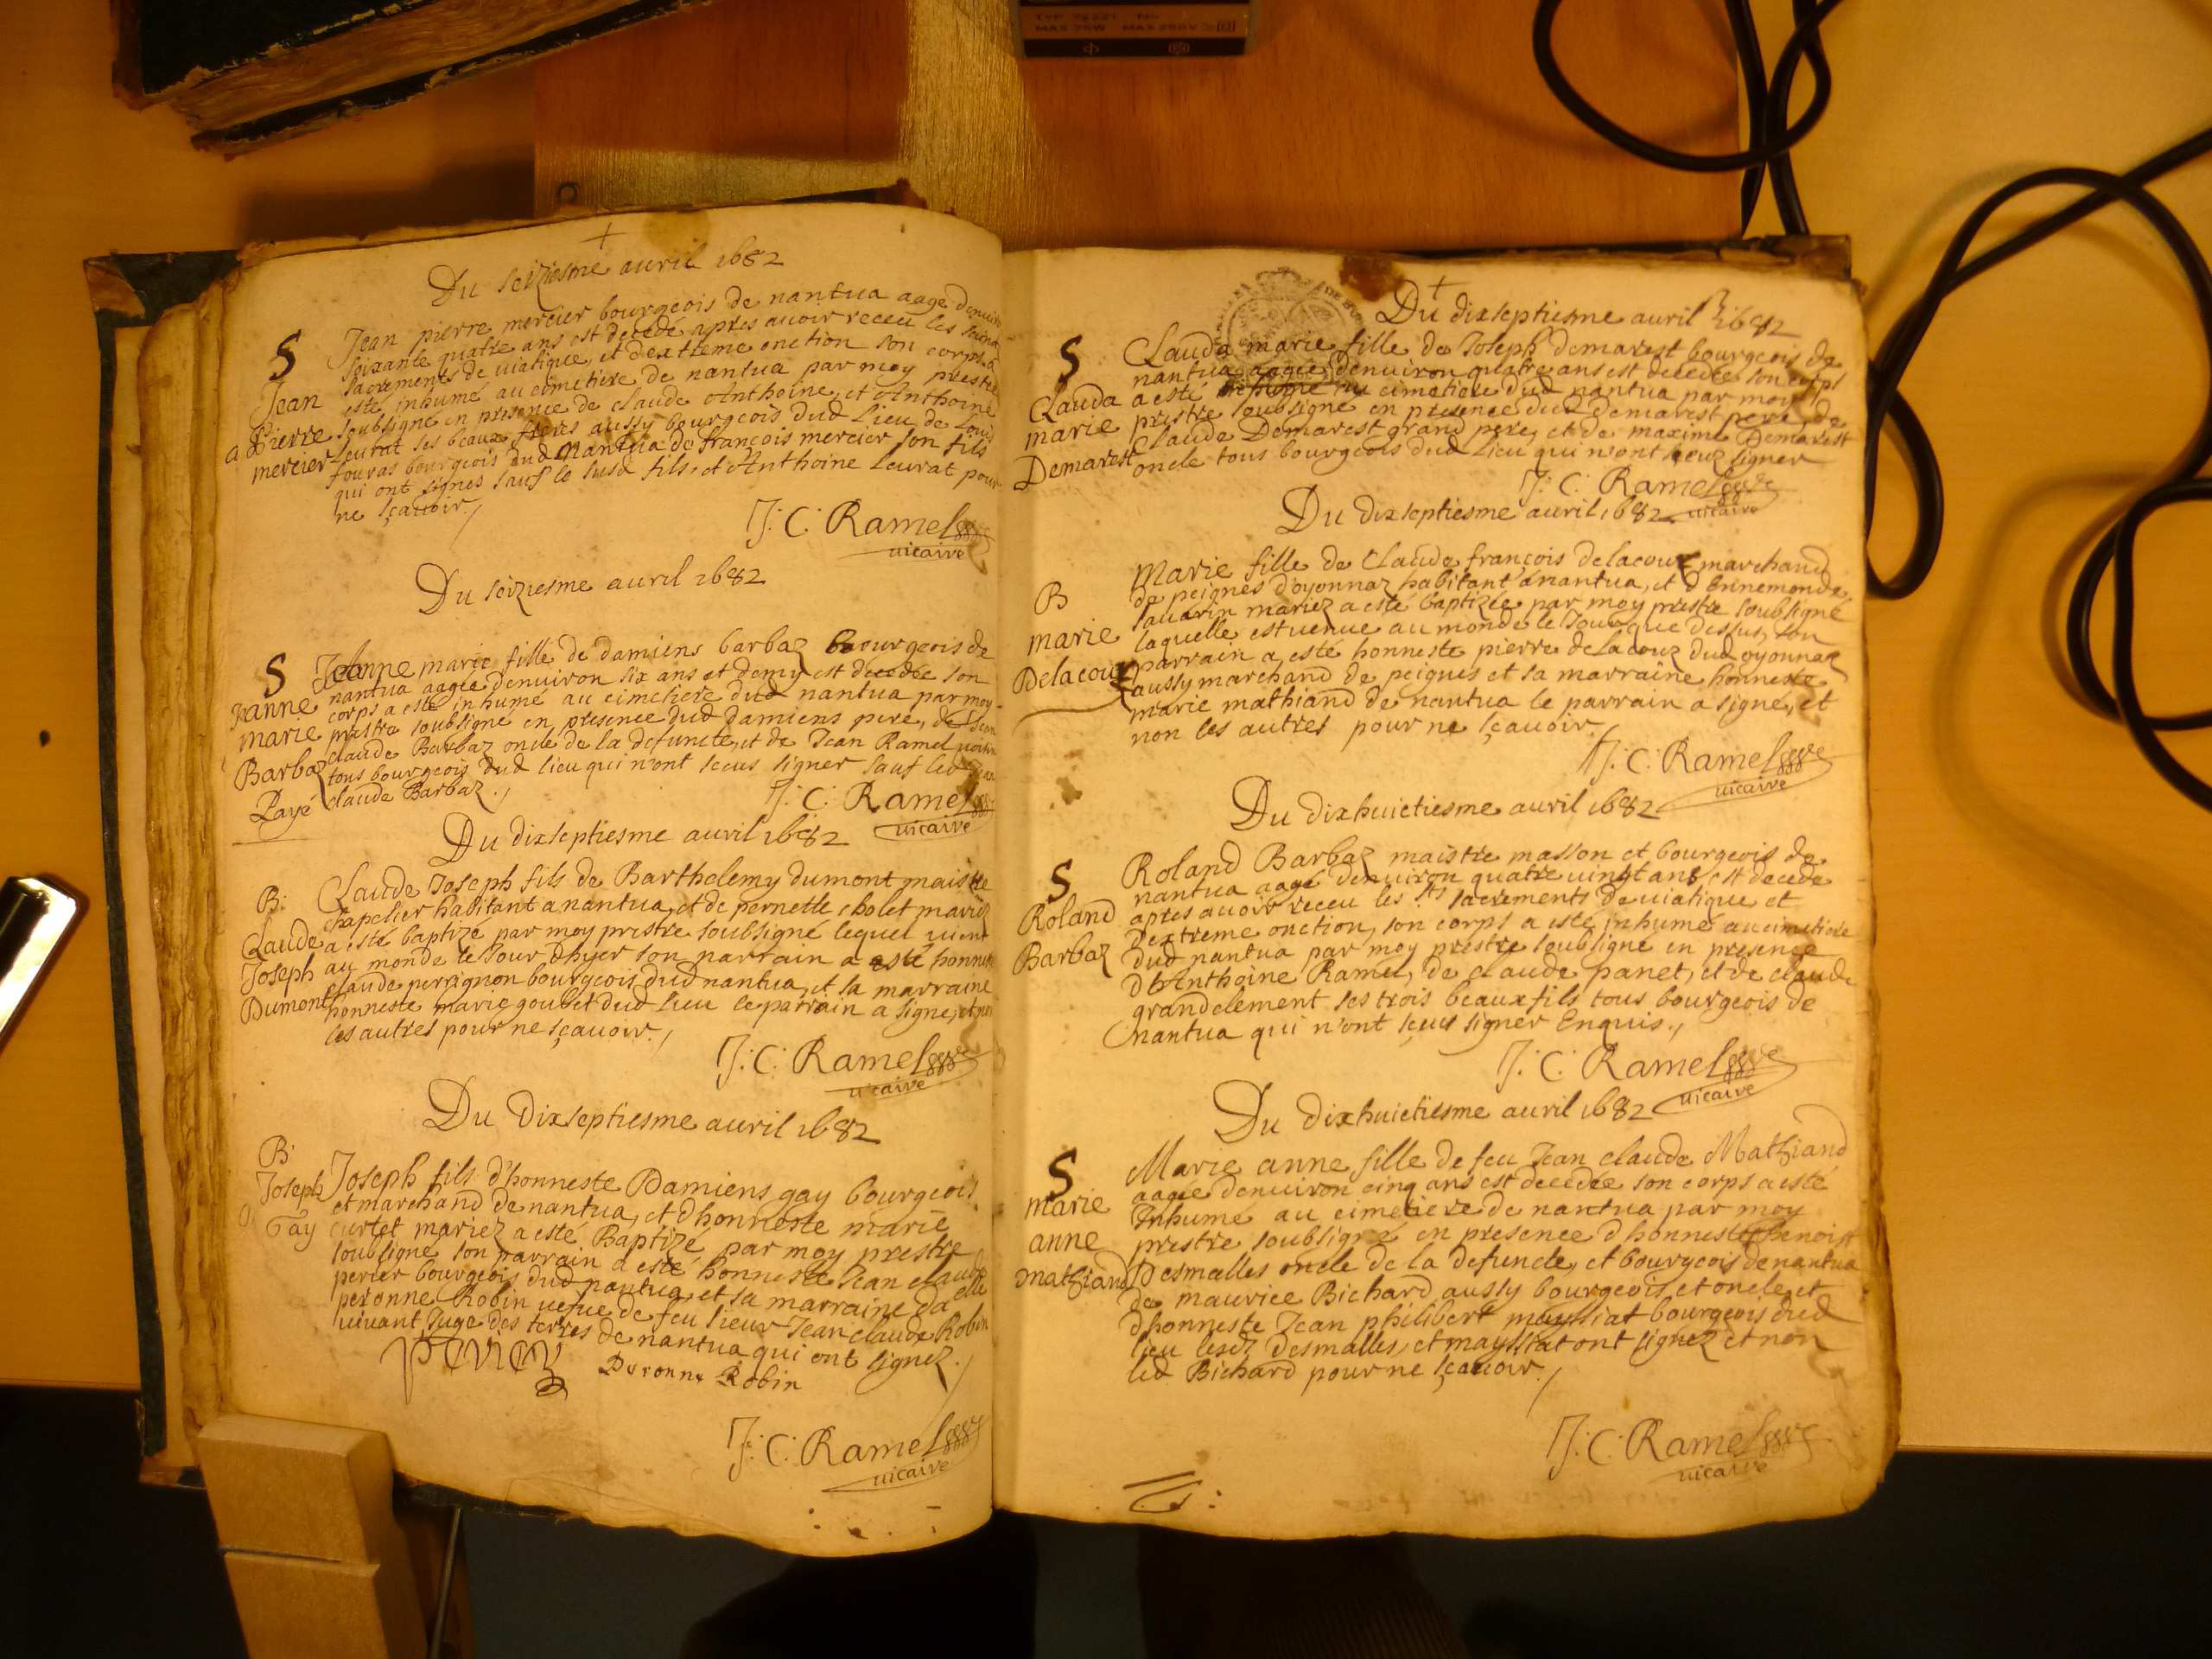 Du seiziesme auril 1682
S
Jean
Pierre
mercier
Jean pierre mercier bourgeois de nantua aagé denuiron
soixante quatre ans est decedé apres auoir receu les saincts
sacrements de uiatique, et dextreme onction son corps a
esté inhumé au cimetiere de nantua par moy prestre
soubsigné en presence de claude Anthoine, et Anthoine
Leurat ses beaux freres aussy bourgeois dud Lieu, de Louis
fouras bourgeois dud Nantua de françois mercier son fils
qui ont signes sauf le susd fils, et Anthoine Leurat pour
ne sçauoir./
J: C: Ramel
uicaire
Du seiziesme auril 1682
S
Jeanne
marie
Barbaz
Payé
Jeanne marie fille de damiens barbaz bourgeois de
nantua aagée denuiron six ans et demy est decedée son
corps a esté inhumé au cimetiere dud nantua par moy
prestre soubsigné en presence dud damiens pere, de Jean
claude Barbaz oncle de la defuncte, et de Jean Ramel
tous bourgeois dud lieu qui n'ont sceus signer sauf led Jean
claude Barbaz./
J: C: Ramel
uicaire
Du dixseptiesme auril 1682
B:
Claude
Joseph
Dumont
Claude Joseph fils de Barthelemy dumont maistre
chapelier habitant a nantua, et de pernette cholet mariez
a esté baptizé par moy prestre soubsigné lequel uient
au monde le Jour dhyer son parrain a esté honneste
claude perrignon bourgeois dud nantua, et sa marraine
honneste marie goulet dud lieu le parrain a signé, et non
les autres pour ne sçauoir./
J: C: Ramel
uicaire
Du Dixseptiesme auril 1682
B:
Joseph
Gay
Joseph fils d'honneste Damiens gay bourgeois
et marchand de nantua, et dhonneste marie
curtet mariez a esté Baptizé par moy prestre
soubsigné son parrain a esté honneste Jean claude
perier bourgeois dud nantua, et sa marraine da elle
peronne Robin uefue de feu sieur Jean claude Robin
uiuant Juge des terres de nantua qui ont signez./
Peronne Robin
J: C: Ramel
uicaire
Du dixseptiesme auril 1682
S
Clauda
marie
Demarest
Clauda marie fille de Joseph demarest bourgeois de
nantua aagée denuiron quatre ans est decedée son corps
a esté inhumé au cimetiere dud nantua par moy
prestre soubsigné en presence dud demarest pere, de
Claude Demarest grand pere, et de maxime Demarest
oncle tous bourgeois dud Lieu qui n'ont sceuz signer
J: C: Ramel
uicaire
Du dixseptiesme auril 1682
B
marie
Delacouz
Marie fille de Claude françois delacouz marchand
de peignes d'oyonnaz habitant a nantua, et d'Ennemonde
sauarin mariez a esté baptizée par moy prestre soubsigné
laquelle est uenue au monde le Jour que dessus, son
parrain a esté honneste pierre delacouz dud oyonnaz
aussy marchand de peignes et sa marraine honneste
marie mathiand de nantua le parrain a signé, et
non les autres pour ne sçauoir./
J: C: Ramel
uicaire
Du dixhuictiesme auril 1682
S
Roland
Barbaz
Roland Barbaz maistre masson et bourgeois de
nantua aagé denuiron quatre uingt ans est decedé
apres auoir receu les Sts sacrements de uiatique et
dextreme onction, son corps a esté inhumé au cimetiere
dud nantua par moy prestre soubsigné en presence
d'Anthoine Ramel, de claude panet, et de claude
grandclement ses trois beaux fils tous bourgeois de
nantua qui n'ont sceus signer Enquis./
J: C: Ramel
uicaire
Du dixhuictiesme auril 1682
S
marie
anne
Mathiand
Marie anne fille de feu Jean claude Mathiand
aagée denuiron cinq ans est decedée son corps a esté
Inhumé au cimetiere de nantua par moy
prestre soubsigné en presence d honneste Benoist
Desmalles oncle de la defuncte, et bourgeois de nantua
de maurice Bichard aussy bourgeois et oncle, et
dhonneste Jean philibert mayssiat bourgeois dud
lieu lesdz Desmalles, et mayssiat ont signez et non
led Bichard pour ne sçauoir./
J: C: Ramel
uicaire